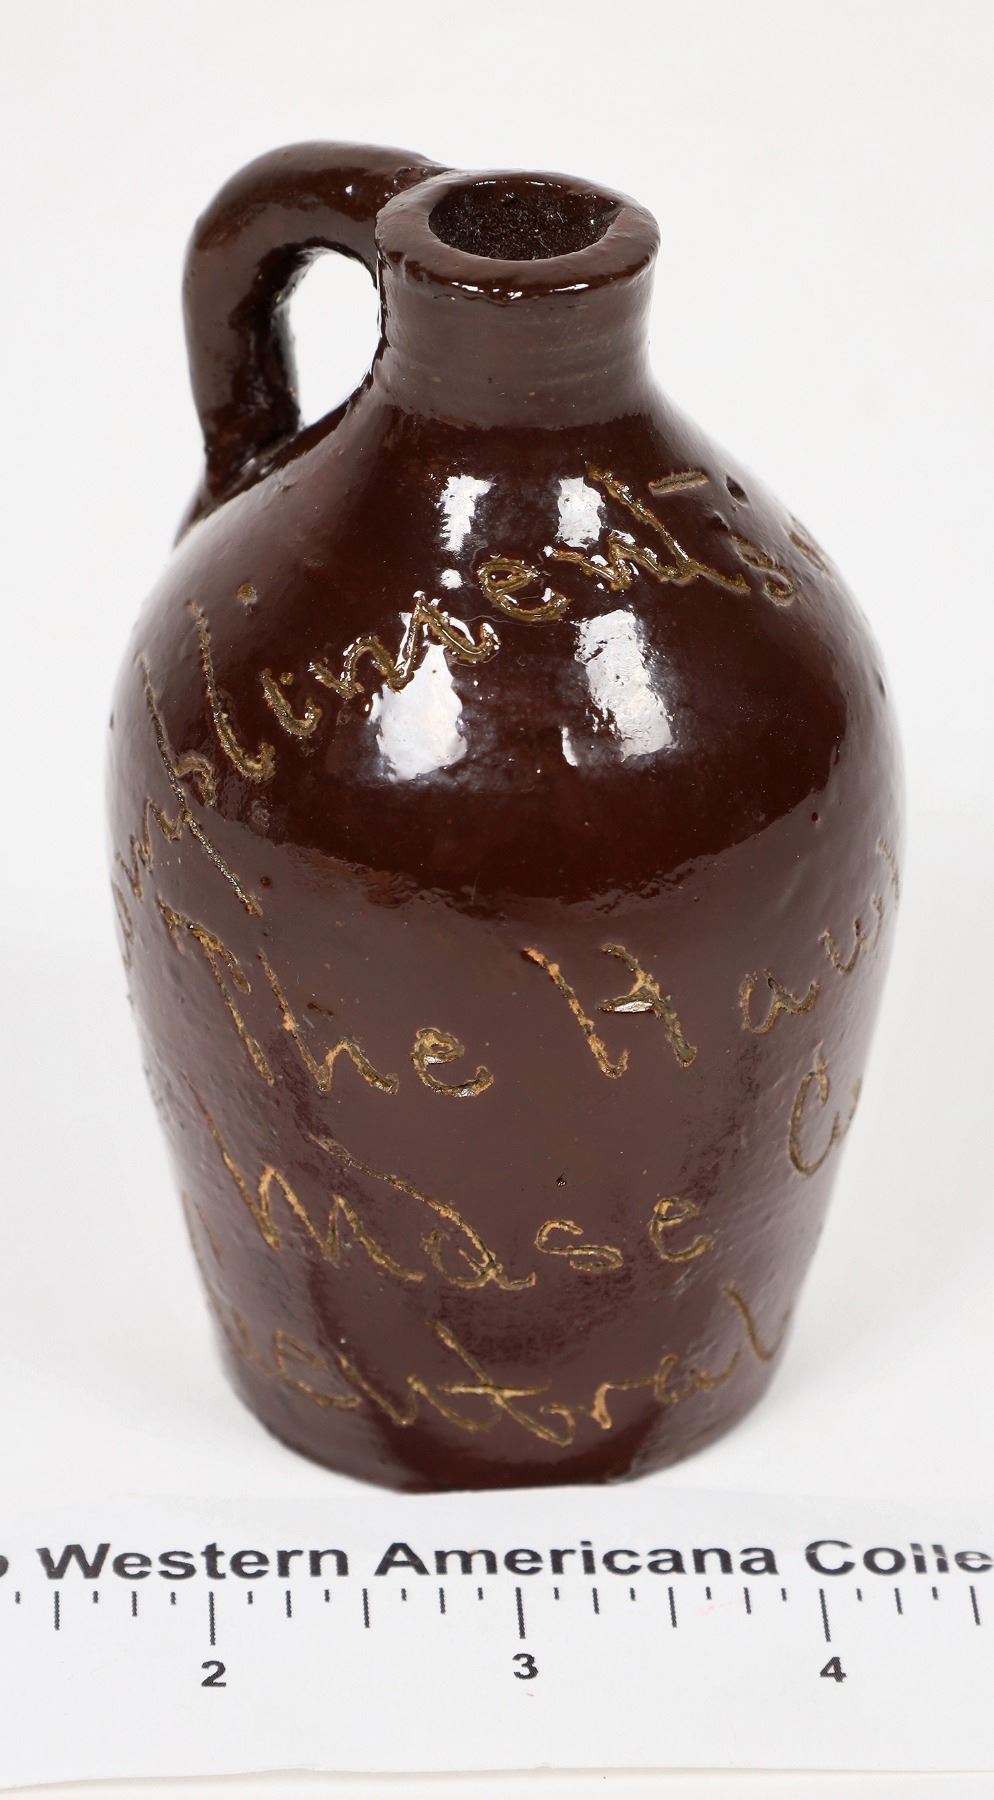 Compliments
The Haw
Mase Co
Central
Western Americana Colle
2 3 4